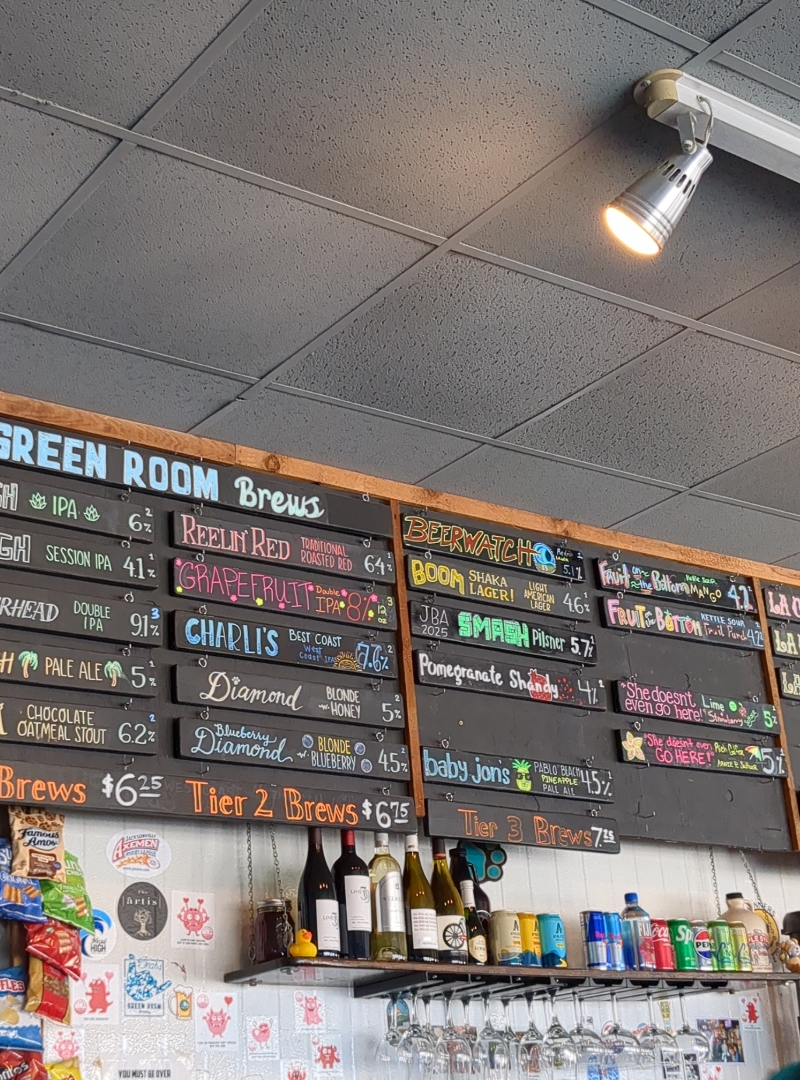 GREEN ROOM Brews
IPA 6%2
SESSION IPA 4.1%2
DOUBLE IPA 9.1%3
PALE ALE 5%1
CHOCOLATE OATMEAL STOUT 6.2%2
Brews $6.25
REELIN' RED TRADITIONAL ROASTED RED 6.4%
GRAPEFRUIT Double IPA 8%
CHARLI'S BEST COAST West Coast IPA 7.6%2
Diamond BLONDE w/ HONEY 5%2
Blueberry Diamond BLONDE w/ BLUEBERRY 4.5%2
Tier 2 Brews $6.75
BEERWATCH 5.1%
BOOM SHAKA LAGER! LIGHT AMERICAN LAGER 4.6%
JBA 2025 SMASH Pilsner 5.7%
Pomegranate Shandy 4%
baby jon's PABLO BLACK PINEAPPLE PALE ALE 4.5%
Tier 3 Brews 7.25
Fruit on the Bottom Kettle Sour MANGO 4.2%
FRUIT BOTTOM KETTLE SOUR 4.2
"She doesn't even go here!" Lime Strawberry 5%
"She doesn't even GO HERE!" 5%
Famous Amos
JACKSONVILLE
AXEMEN
The
ártis
HIGH
GREEN ROOM
YOU MUST BE OVER
pepsi